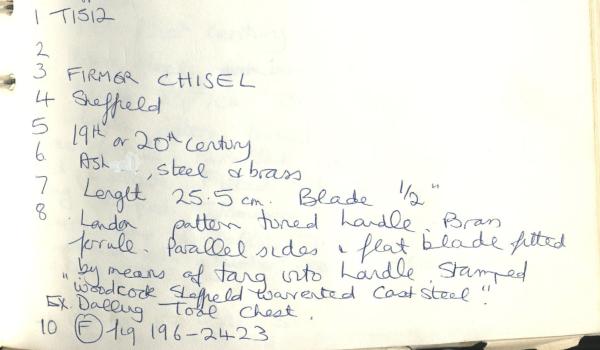 1 T1512
2
3 FIRMER CHISEL
4 Sheffield
5 19th or 20th Century
6 Ash, steel & brass
7 Length 25.5cm. Blade 1/2"
8 London pattern turned handle. Brass
ferrule. Parallel sides & flat blade fitted
by means of tang into handle. Stamped
"Woodcock Sheffield warrented Cast steel".
Ex. Dalling Tool Chest.
10 (F) fig 196-2423